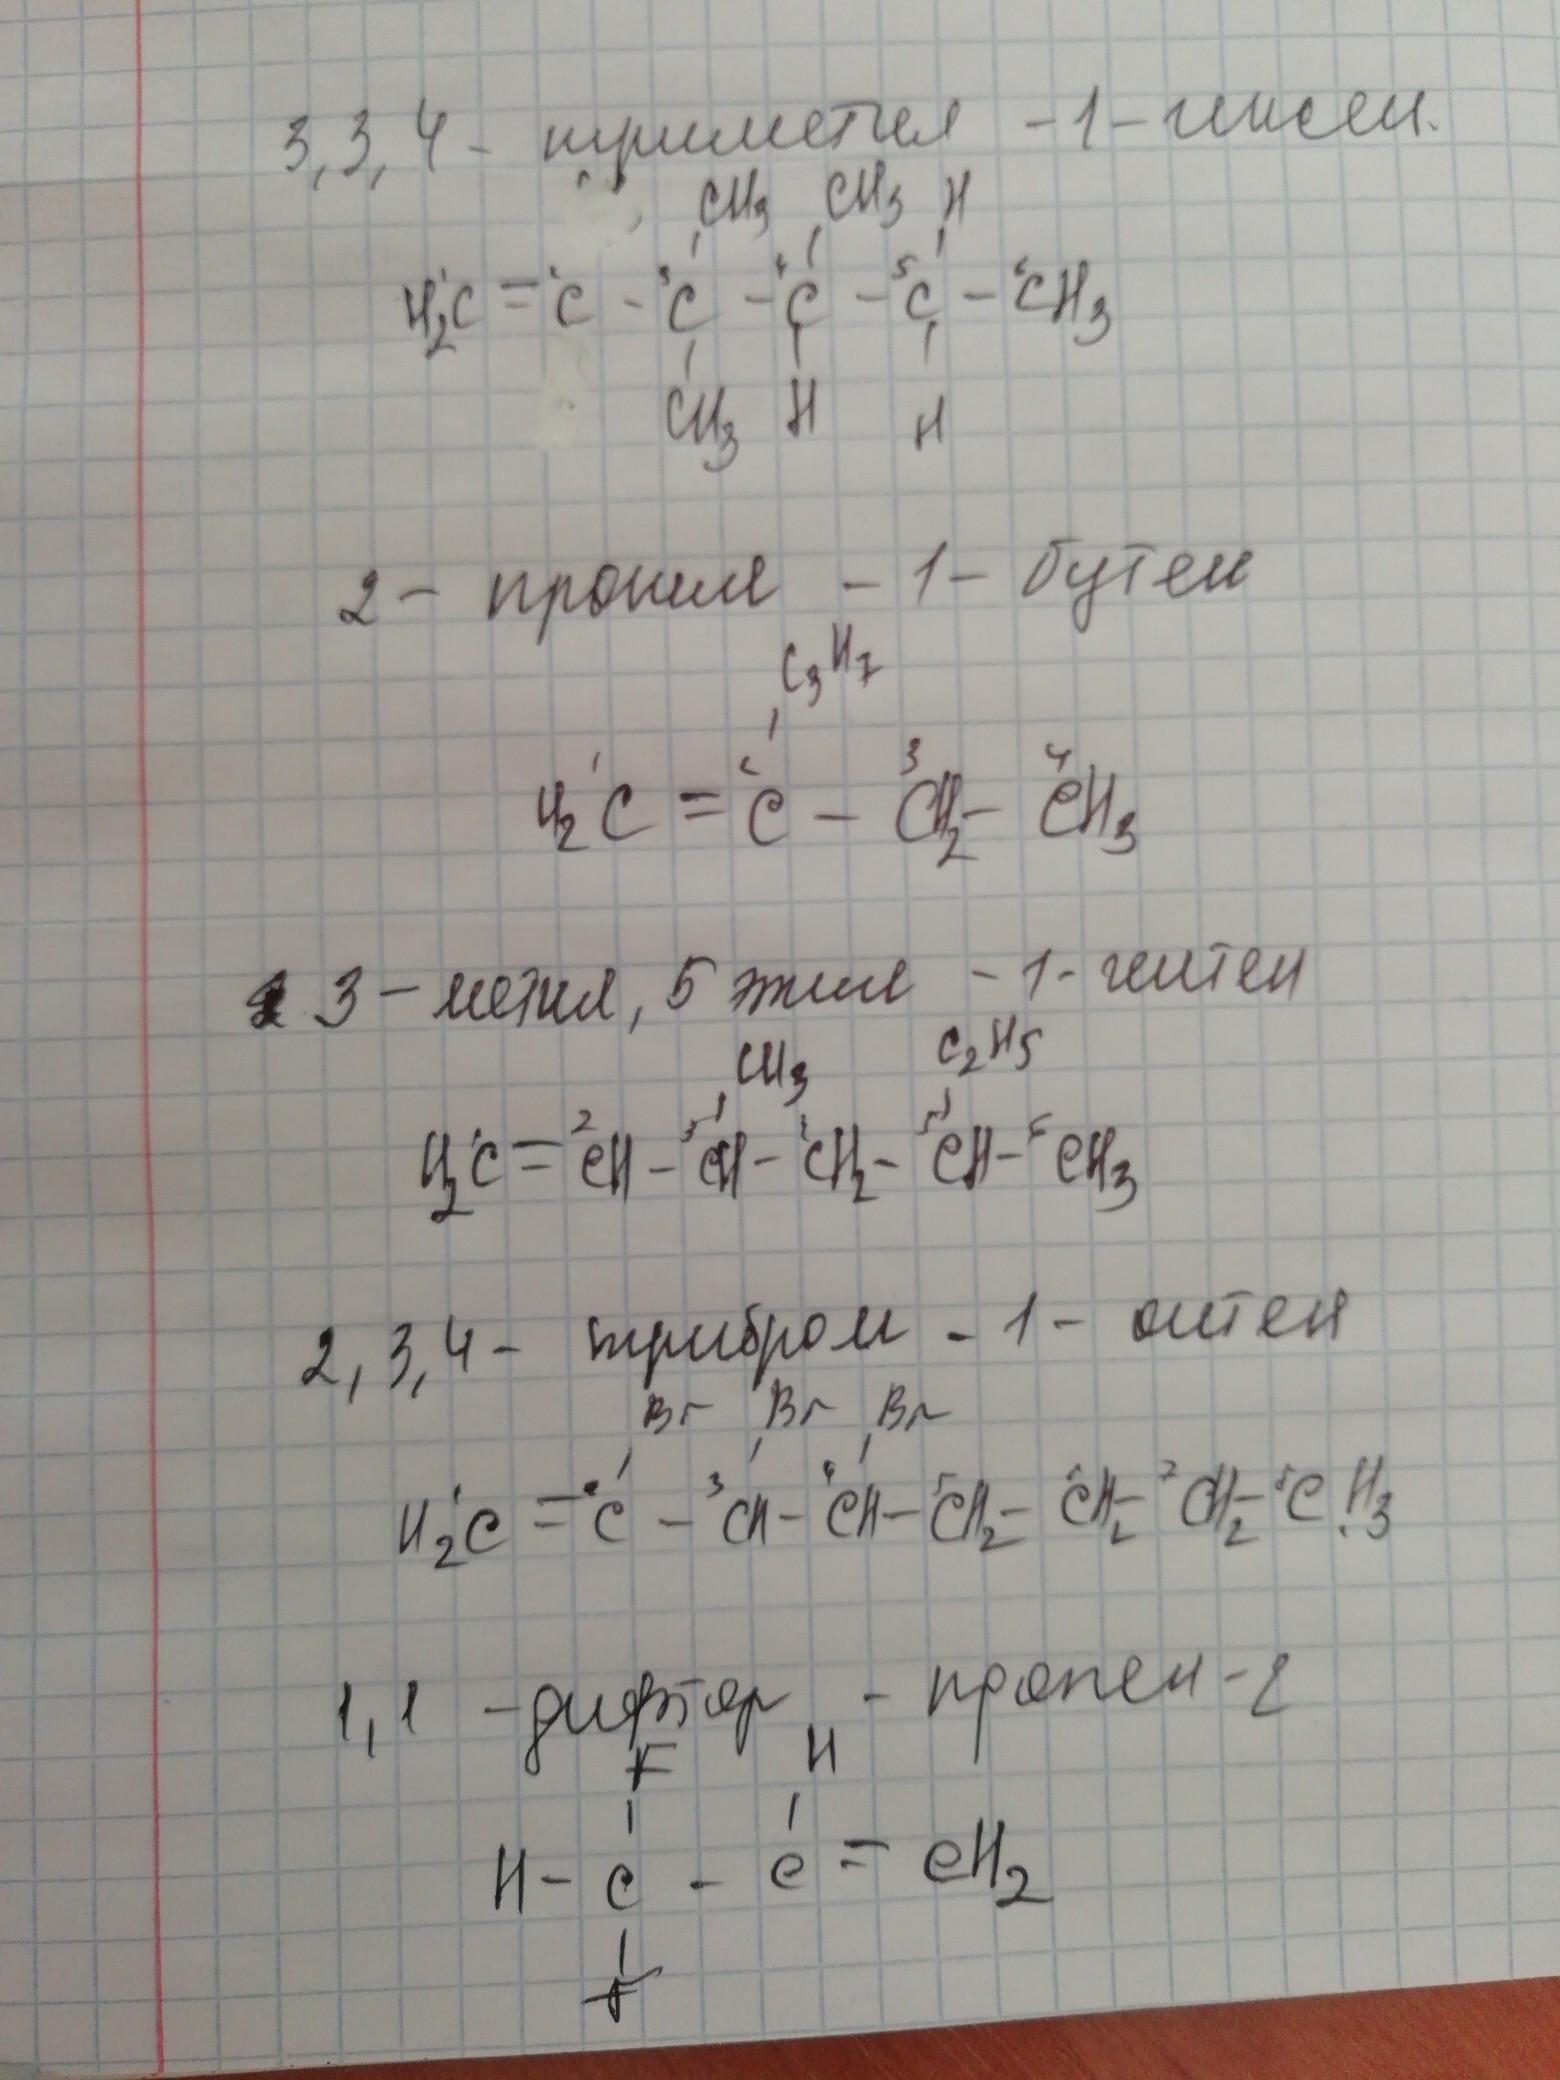 3,3,4 - триметил - 1 - гексен.
CH3 CH3 H
H2C = C - C - C - C - CH3
1 2 3 4 5 6
CH3 H H
2 - пропил - 1 - бутен
C3H7
1 2 3 4
H2C = C - CH2 - CH3
3 - метил, 5 этил - 1 - гептен
CH3 C2H5
1 2 3 4 5 6
H2C = CH - CH - CH2 - CH - CH3
2,3,4 - трибром - 1 - октен
Br Br Br
1 2 3 4 5 6 7 8
H2C = C - CH - CH - CH2 - CH2 - CH2 - CH3
1,1 - дифтор - пропен - 2
F H
H - C - C = CH2
F